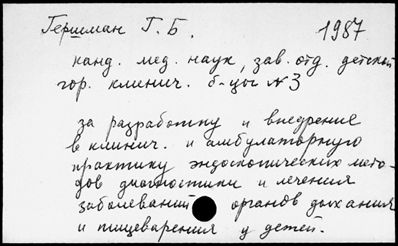 Гершман Г. Б. 1987
канд. мед. наук, зав. отд. детской
гор. клинич. б-цы №3
за разработку и внедрение
в клинич. и амбулаторную
практику эндоскопических мето-
дов диагностики и лечения
заболеваний органов дыхания
и пищеварения у детей.